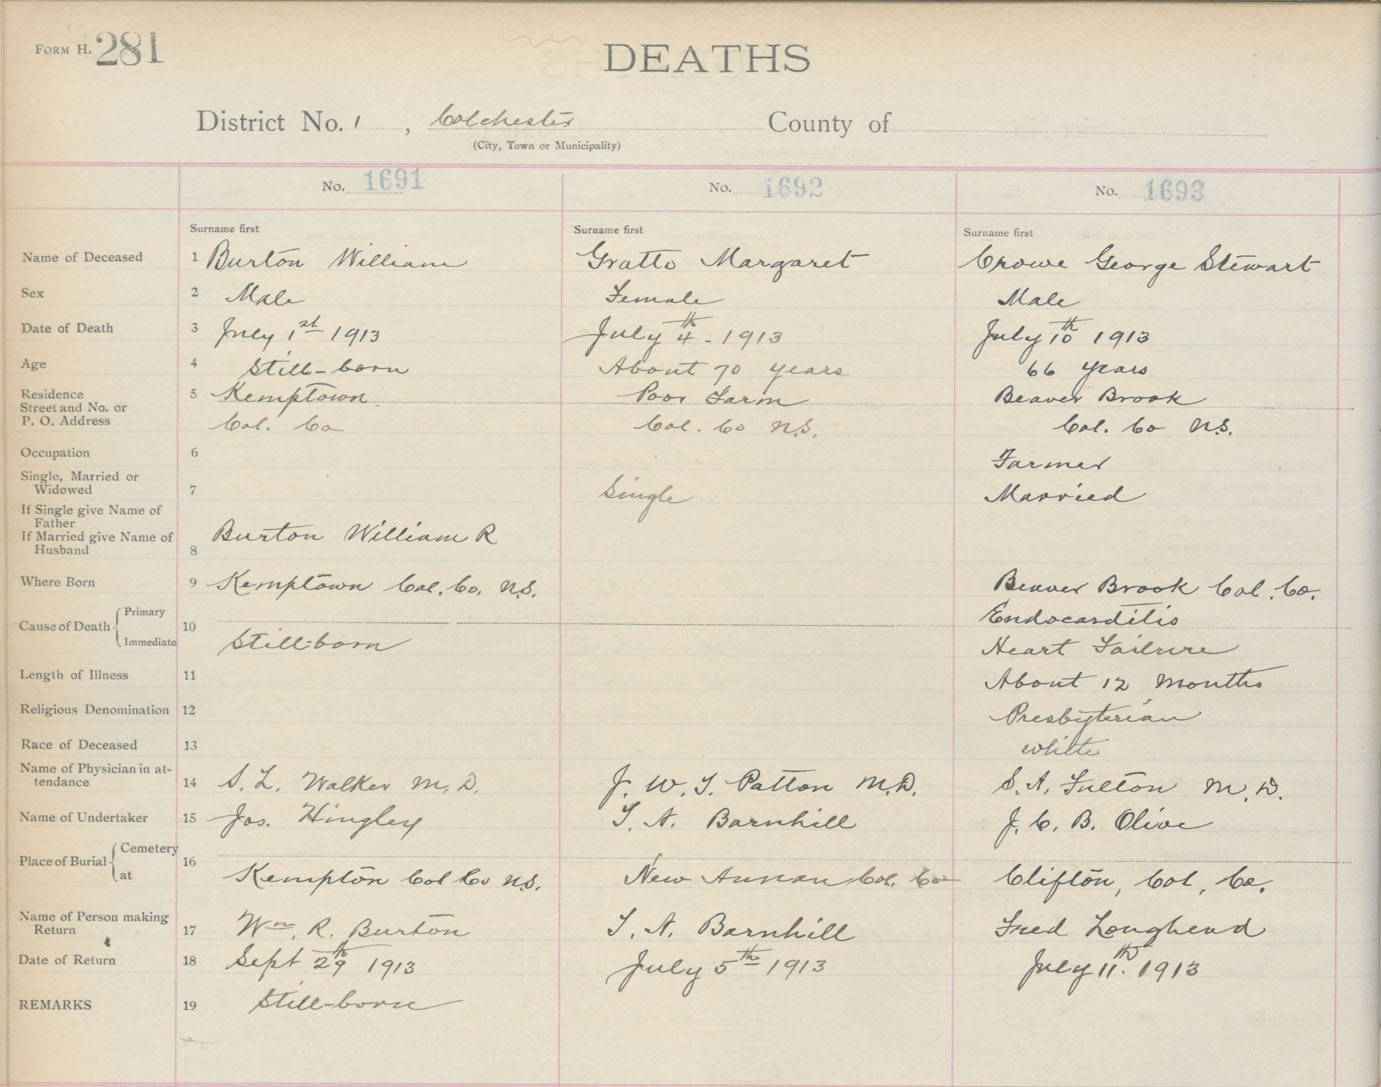 FORM H. 281
DEATHS
District No. 1, Colchester County of
(City, Town or Municipality)
No. 1691 No. 1692 No. 1693
Surname first Surname first Surname first
Name of Deceased 1 Burton William Gratto Margaret Crowe George Stewart
Sex 2 Male Female Male
Date of Death 3 July 1st 1913 July 4th - 1913 July 10th 1913
Age 4 Still-born About 70 years 66 years
Residence 5 Kemptown Poor Farm Beaver Brook
Street and No. or
P. O. Address Col. Co Col. Co N.S. Col. Co N.S.
Occupation 6 Farmer
Single, Married or
Widowed 7 Single Married
If Single give Name of
Father
If Married give Name of
Husband 8 Burton William R
Where Born 9 Kemptown Col. Co. N.S. Beaver Brook Col. Co.
Cause of Death 10 Primary Endocarditis
Immediate Still-born Heart Failure
Length of Illness 11 About 12 Months
Religious Denomination 12 Presbyterian
Race of Deceased 13 white
Name of Physician in at-
tendance 14 S. L. Walker M. D. J. W. T. Patton M.D. S. A. Fulton M. D.
Name of Undertaker 15 Jas. Hingley T. A. Barnhill J. C. B. Olive
Place of Burial 16 Cemetery
at Kempton Col Co N.S. New Annan Col. Co Clifton, Col, Co.
Name of Person making
Return 17 Wm. R. Burton T. A. Barnhill Fred Longhead
Date of Return 18 Sept 29th 1913 July 5th 1913 July 11th. 1913
REMARKS 19 Still-born